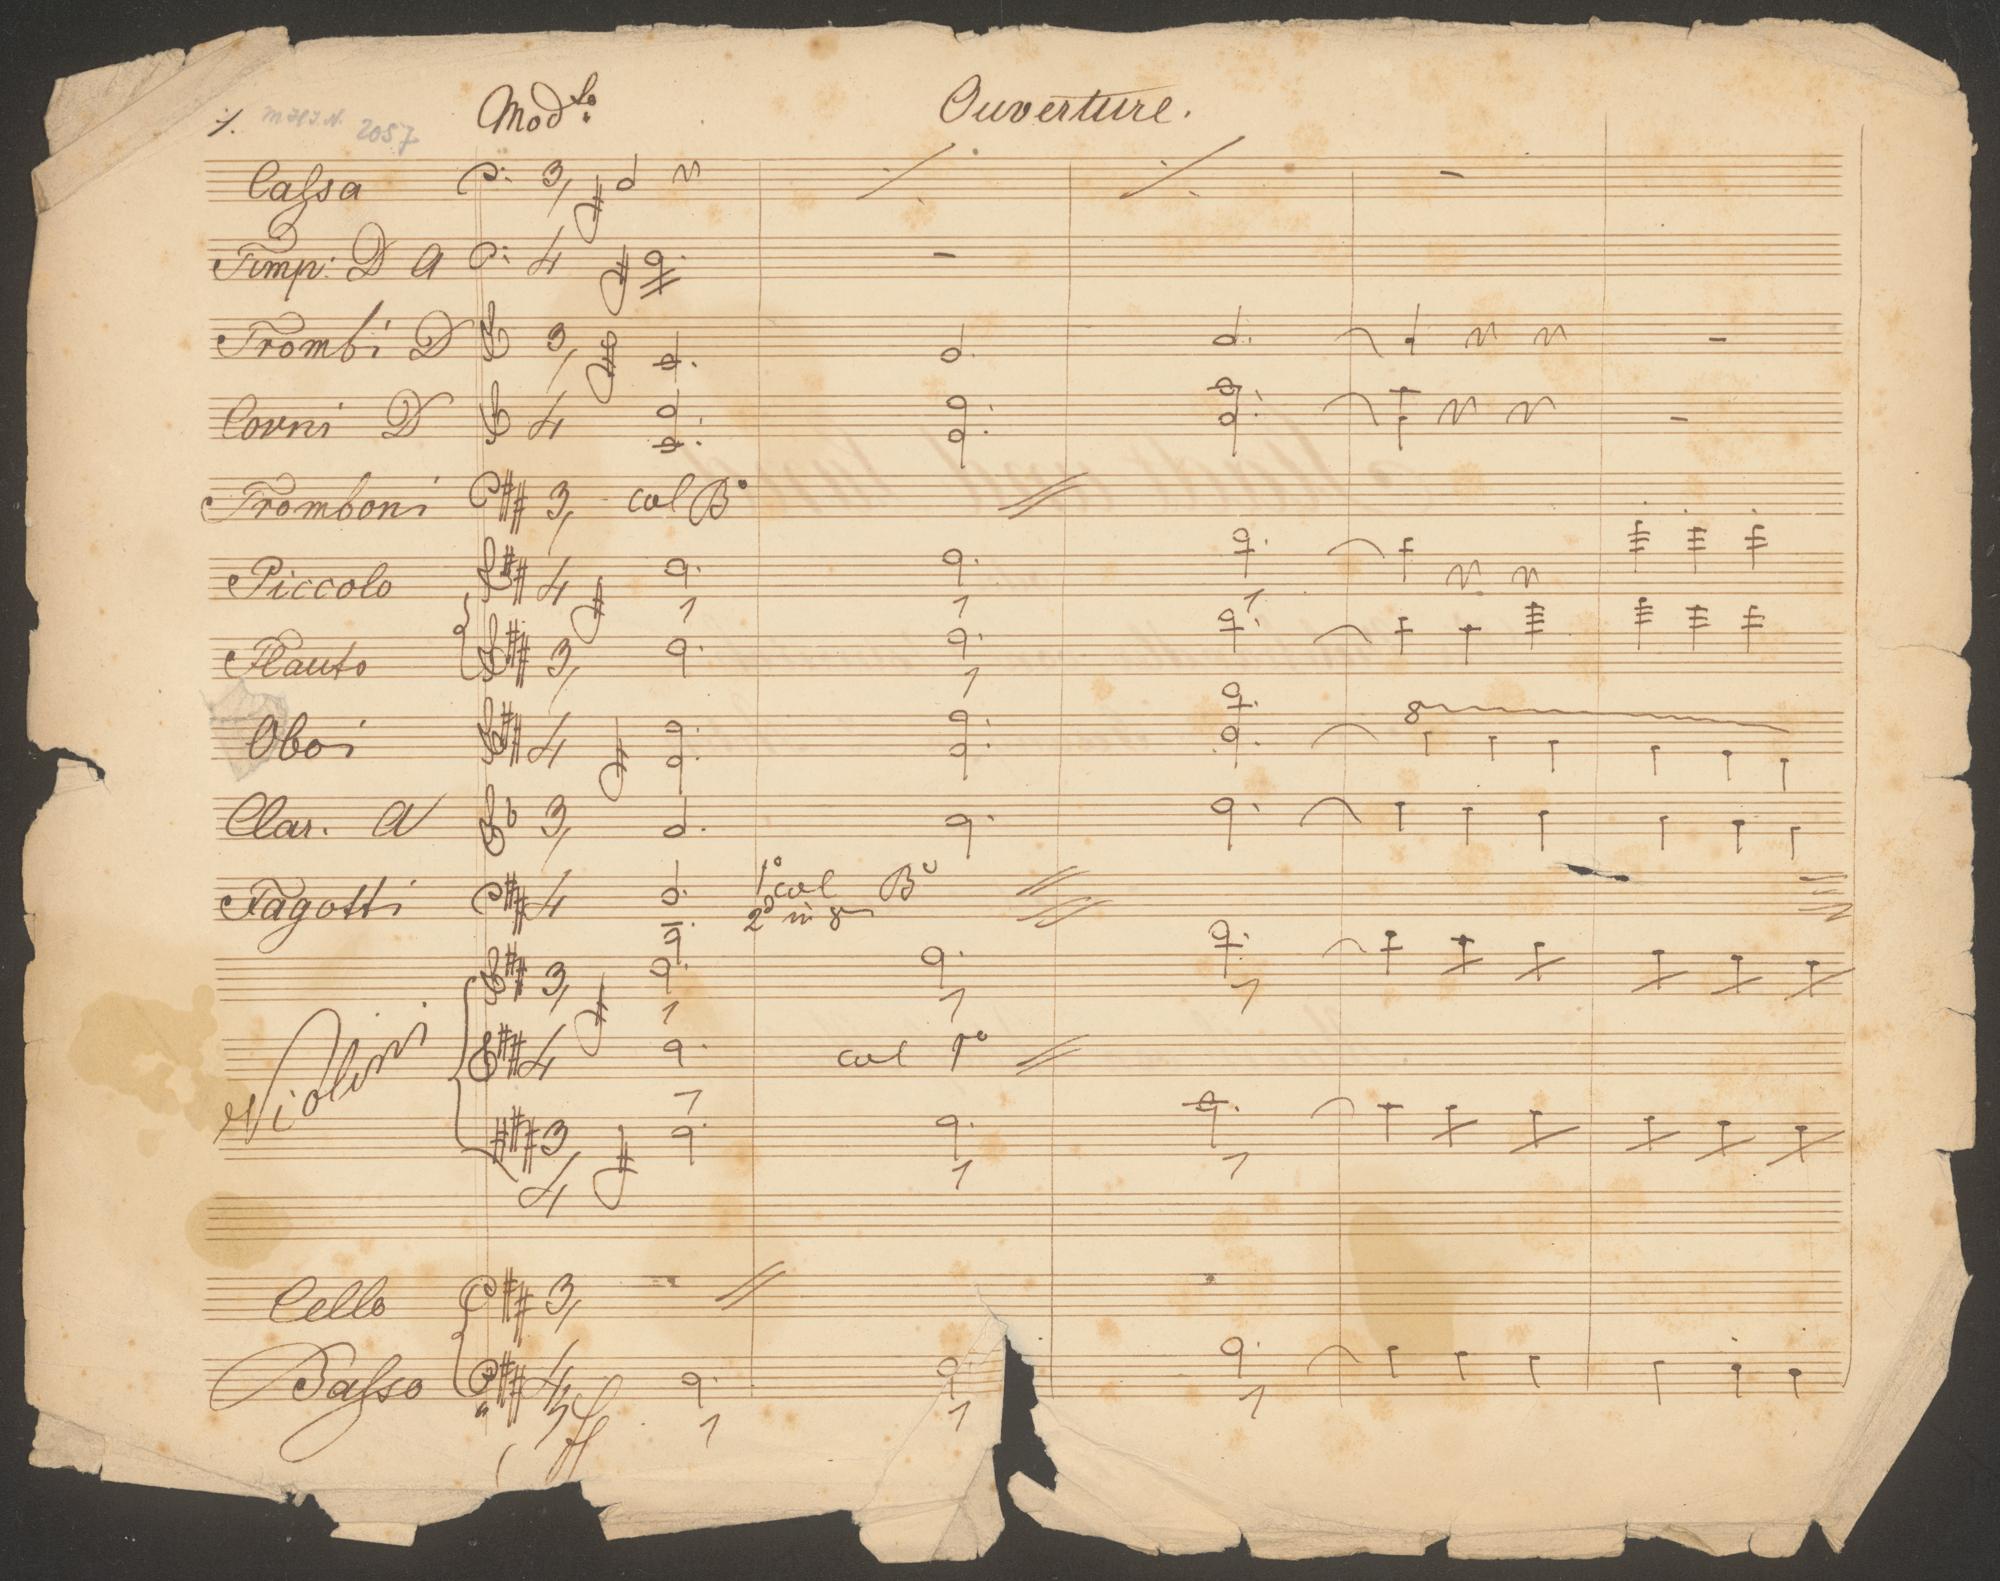 1. Mod.to Ouverture.
2057
Cassa
Timp: D A
Trombi D
Corni D
Tromboni col Bo
Piccolo
Flauto
Oboi 8
Clar. A
Fagotti 1o col Bo
2do in 8va
Violini
col 1o
Cello
Basso ff